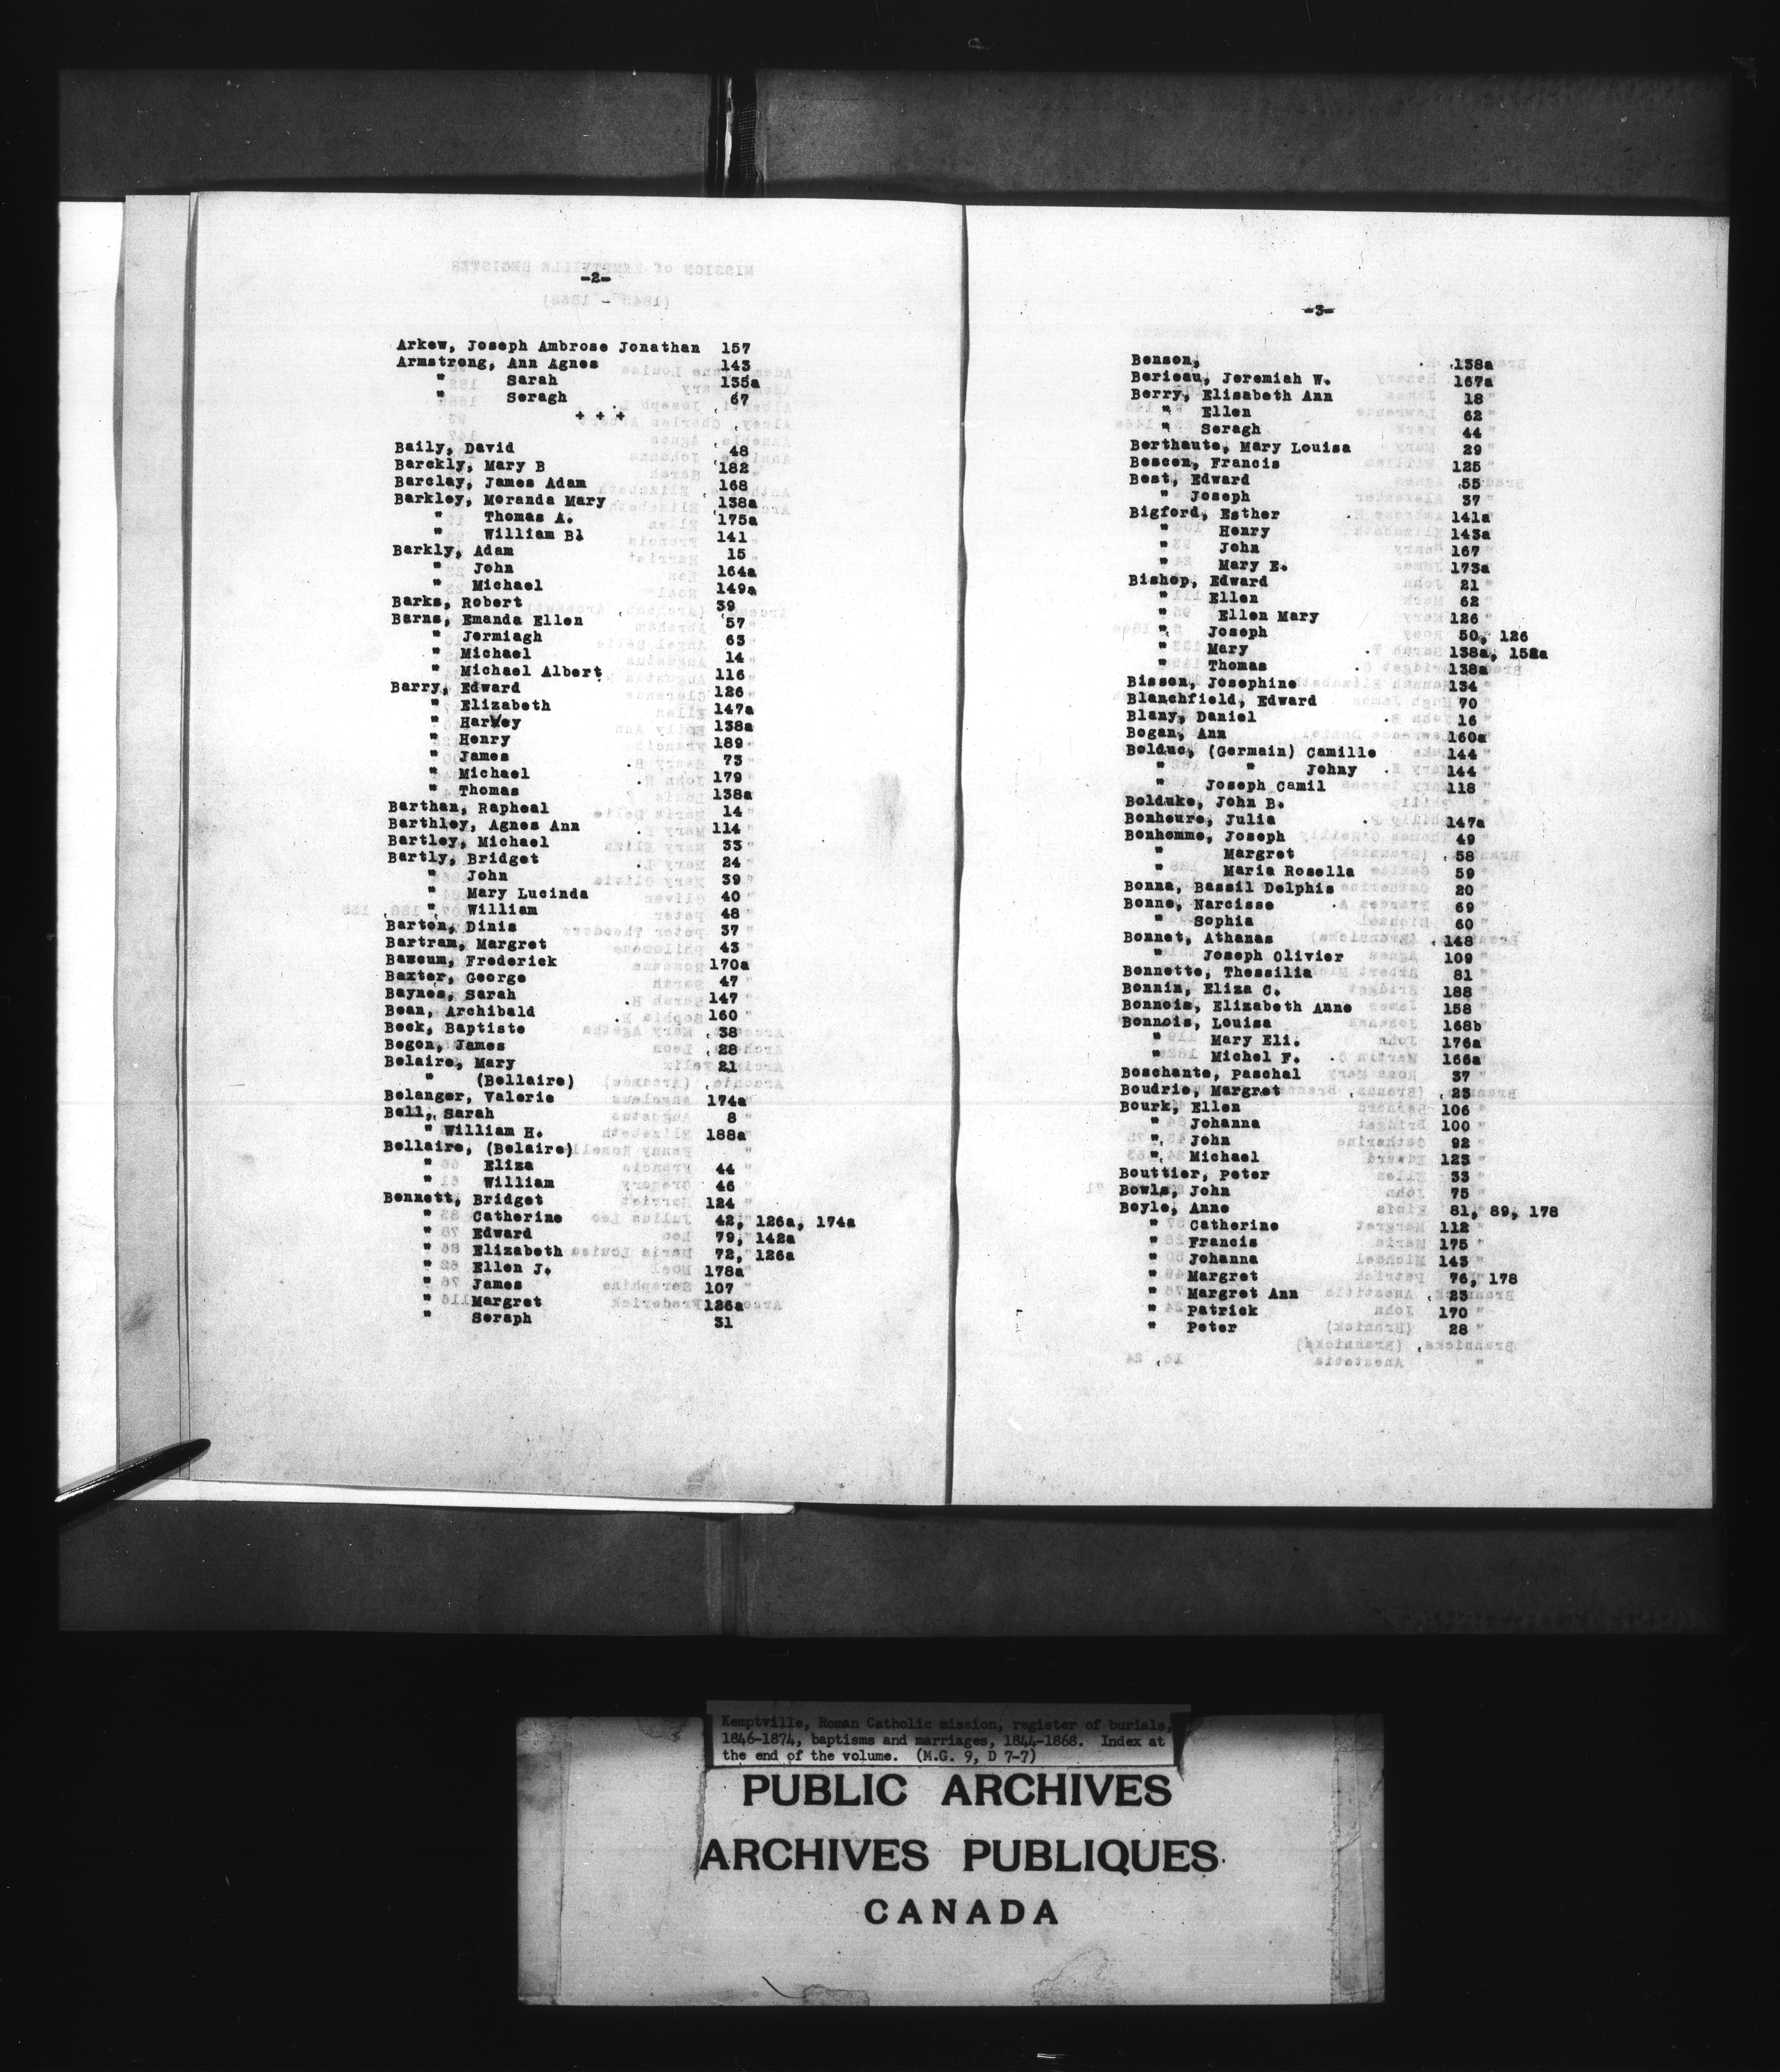 -2-
Arkew, Joseph Ambrose Jonathan 157
Armstrong, Ann Agnes 143
" Sarah 135a
" Seragh 67
+ + +
Baily, David 48
Barckly, Mary B 182
Barclay, James Adam 168
Barkley, Meranda Mary 138a
" Thomas A. 175a
" William Bl 141
Barkly, Adam 15
" John 164a
" Michael 149a
Barks, Robert 39
Barns, Emanda Ellen 57
" Jermiagh 63
" Michael 14
" Michael Albert 116
Barry, Edward 126
" Elizabeth 147a
" Harvey 138a
" Henry 189
" James 73
" Michael 179
" Thomas 138a
Barthan, Rapheal 14
Barthley, Agnes Ann 114
Bartley, Michael 33
Bartly, Bridget 24
" John 39
" Mary Lucinda 40
" William 48
Barton, Dinis 37
Bartram, Margret 43
Bascum, Frederick 170a
Baxter, George 47
Baynes, Sarah 147
Bean, Archibald 160
Beek, Baptiste 38
Begon, James 28
Belaire, Mary 21
" (Bellaire)
Belanger, Valerie 174a
Bell, Sarah 8
" William H. 188a
Bellaire, (Belaire)
" Eliza 44
" William 46
Bennett, Bridget 124
" Catherine 42, 126a, 174a
" Edward 79, 142a
" Elizabeth 72, 126a
" Ellen J. 178a
" James 107
" Margret 126a
" Seraph 31
-3-
Benson, 138a
Berieau, Jeremiah W. 167a
Berry, Elisabeth Ann 18
" Ellen 62
" Seragh 44
Berthaute, Mary Louisa 29
Bescen, Francis 125
Best, Edward 55
" Joseph 37
Bigford, Esther 141a
" Henry 143a
" John 167
" Mary E. 173a
Bishop, Edward 21
" Ellen 62
" Ellen Mary 126
" Joseph 50, 126
" Mary 138a, 152a
" Thomas 138a
Bisson, Josephine 134
Blanchfield, Edward 70
Blany, Daniel 16
Bogan, Ann 160a
Bolduc, (Germain) Camille 144
" " Johny 144
" Joseph Camil 118
Bolduke, John B.
Bonheure, Julia 147a
Bonhomme, Joseph 49
" Margret 58
" Maria Rosella 59
Bonna, Bassil Delphis 20
Bonne, Narcisse 69
" Sophia 60
Bonnet, Athanas 148
" Joseph Olivier 109
Bonnette, Thessilia 81
Bonnin, Eliza C. 188
Bonnois, Elizabeth Anne 158
Bonnois, Louisa 168b
" Mary Eli. 176a
" Michel F. 166a
Boschante, Paschal 37
Boudrie, Margret 23
Bourk, Ellen 106
" Johanna 100
" John 92
" Michael 123
Bouttier, Peter 33
Bowls, John 75
Boyle, Anne 81, 89, 178
" Catherine 112
" Francis 175
" Johanna 143
" Margret 76, 178
" Margret Ann 23
" Patrick 170
" Peter 28
Kemptville, Roman Catholic mission, register of burials,
1846-1874, baptisms and marriages, 1844-1868. Index at
the end of the volume. (M.G. 9, D 7-7)
PUBLIC ARCHIVES
ARCHIVES PUBLIQUES
CANADA